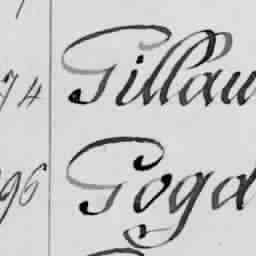 74 Gillau
96 Gogd